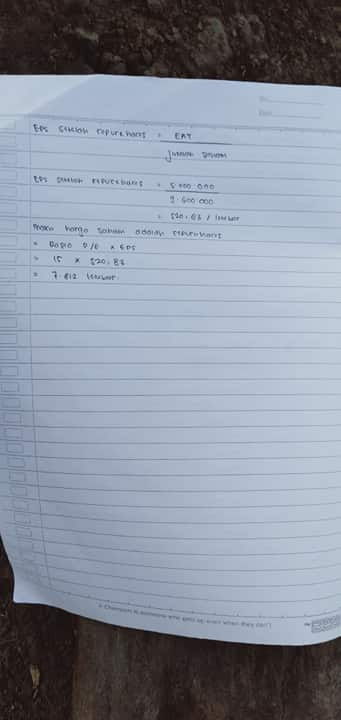 No.
Date.
EPS setelah repurchars = EAT
Jumlah saham
EPS setelah repurchars = 5.000.000
9.600.000
= 520,83 / lembar
harga saham adalah repurchars
= Rasio P/E x EPS
= 15 x 520,83
= 7.812 lembar.
A Champion is someone who gets up even when they can't